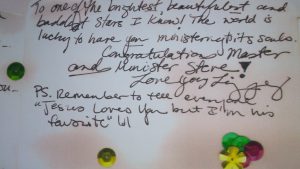 To one of the brightest, beautifulest and
baddest stars I know! The world is
lucky to have you ministering to its souls
Congratulations Master
and Minister Steve
Love
PS. Remember to tell everyone
"Jesus Loves You but I'm his
favorite"